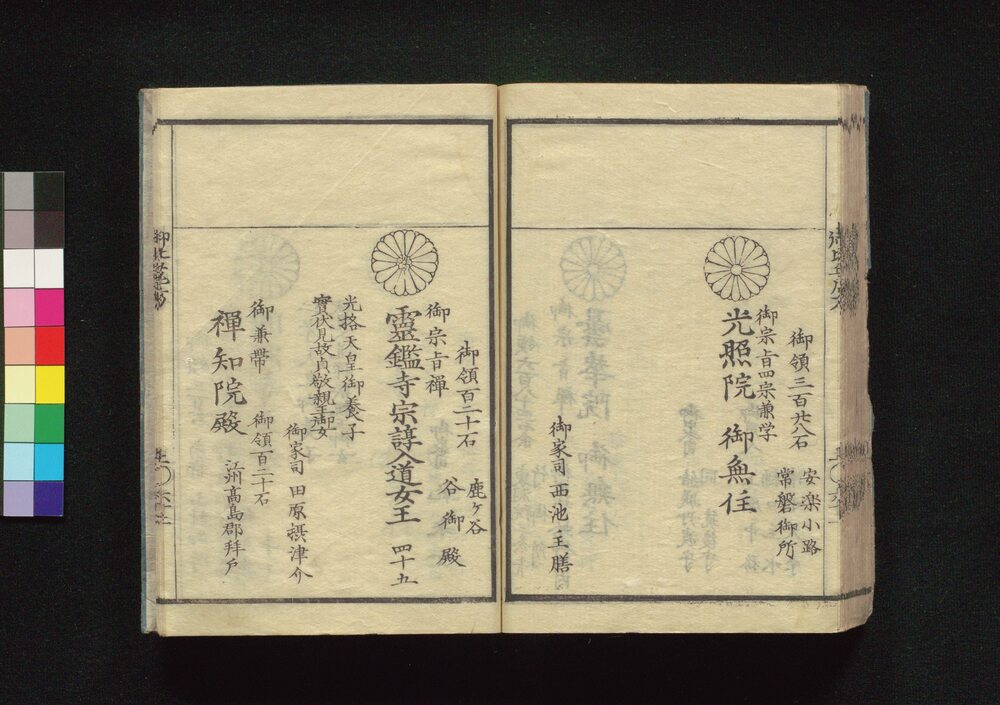 御領三百廿八石
安楽小路
常磐御所
御宗旨四宗兼学
光照院 御無住
御家司 西池主膳
御領百二十石
鹿ヶ谷
谷御殿
御宗旨禅
靈鑑寺宗諄入道女王 四十五
光格天皇御養子
實伏見故貞敬親王御女
御家司 田原摂津介
御兼帯 御領百二十石
禪知院殿 江州高島郡拜戸